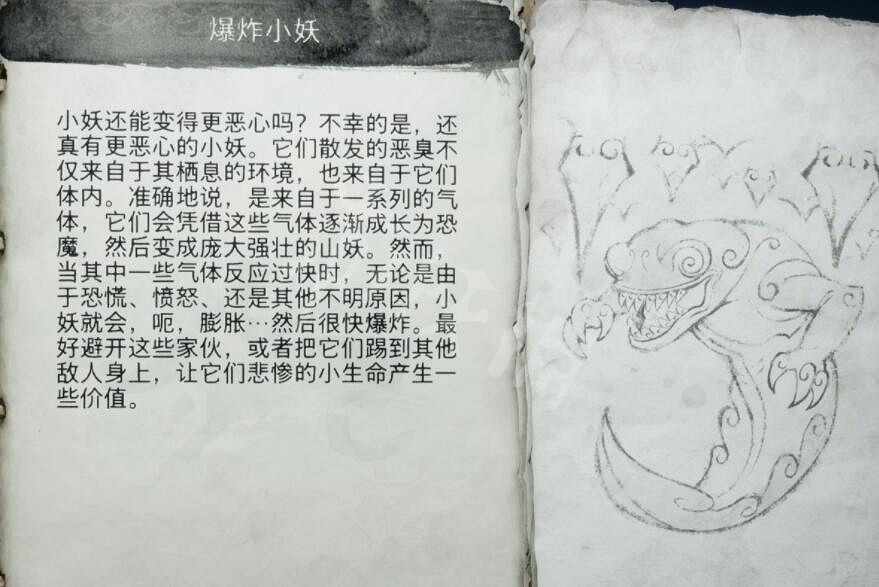 爆炸小妖
小妖还能变得更恶心吗？不幸的是，还
真有更恶心的小妖。它们散发的恶臭不
仅来自于其栖息的环境，也来自于它们
体内。准确地说，是来自于一系列的气
体，它们会凭借这些气体逐渐成长为恐
魔，然后变成庞大强壮的山妖。然而，
当其中一些气体反应过快时，无论是由
于恐慌、愤怒、还是其他不明原因，小
妖就会，呃，膨胀…然后很快爆炸。最
好避开这些家伙，或者把它们踢到其他
敌人身上，让它们悲惨的小生命产生一
些价值。